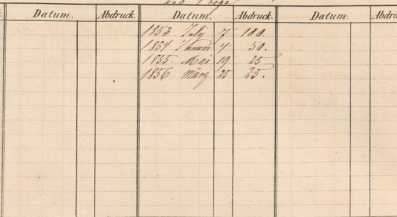 Datum. Abdruck. Datum. Abdruck. Datum. Abdru
1853 July 7 100.
1854 Januar 4 50.
1855 Mai 19 25
1856 März 26 25.